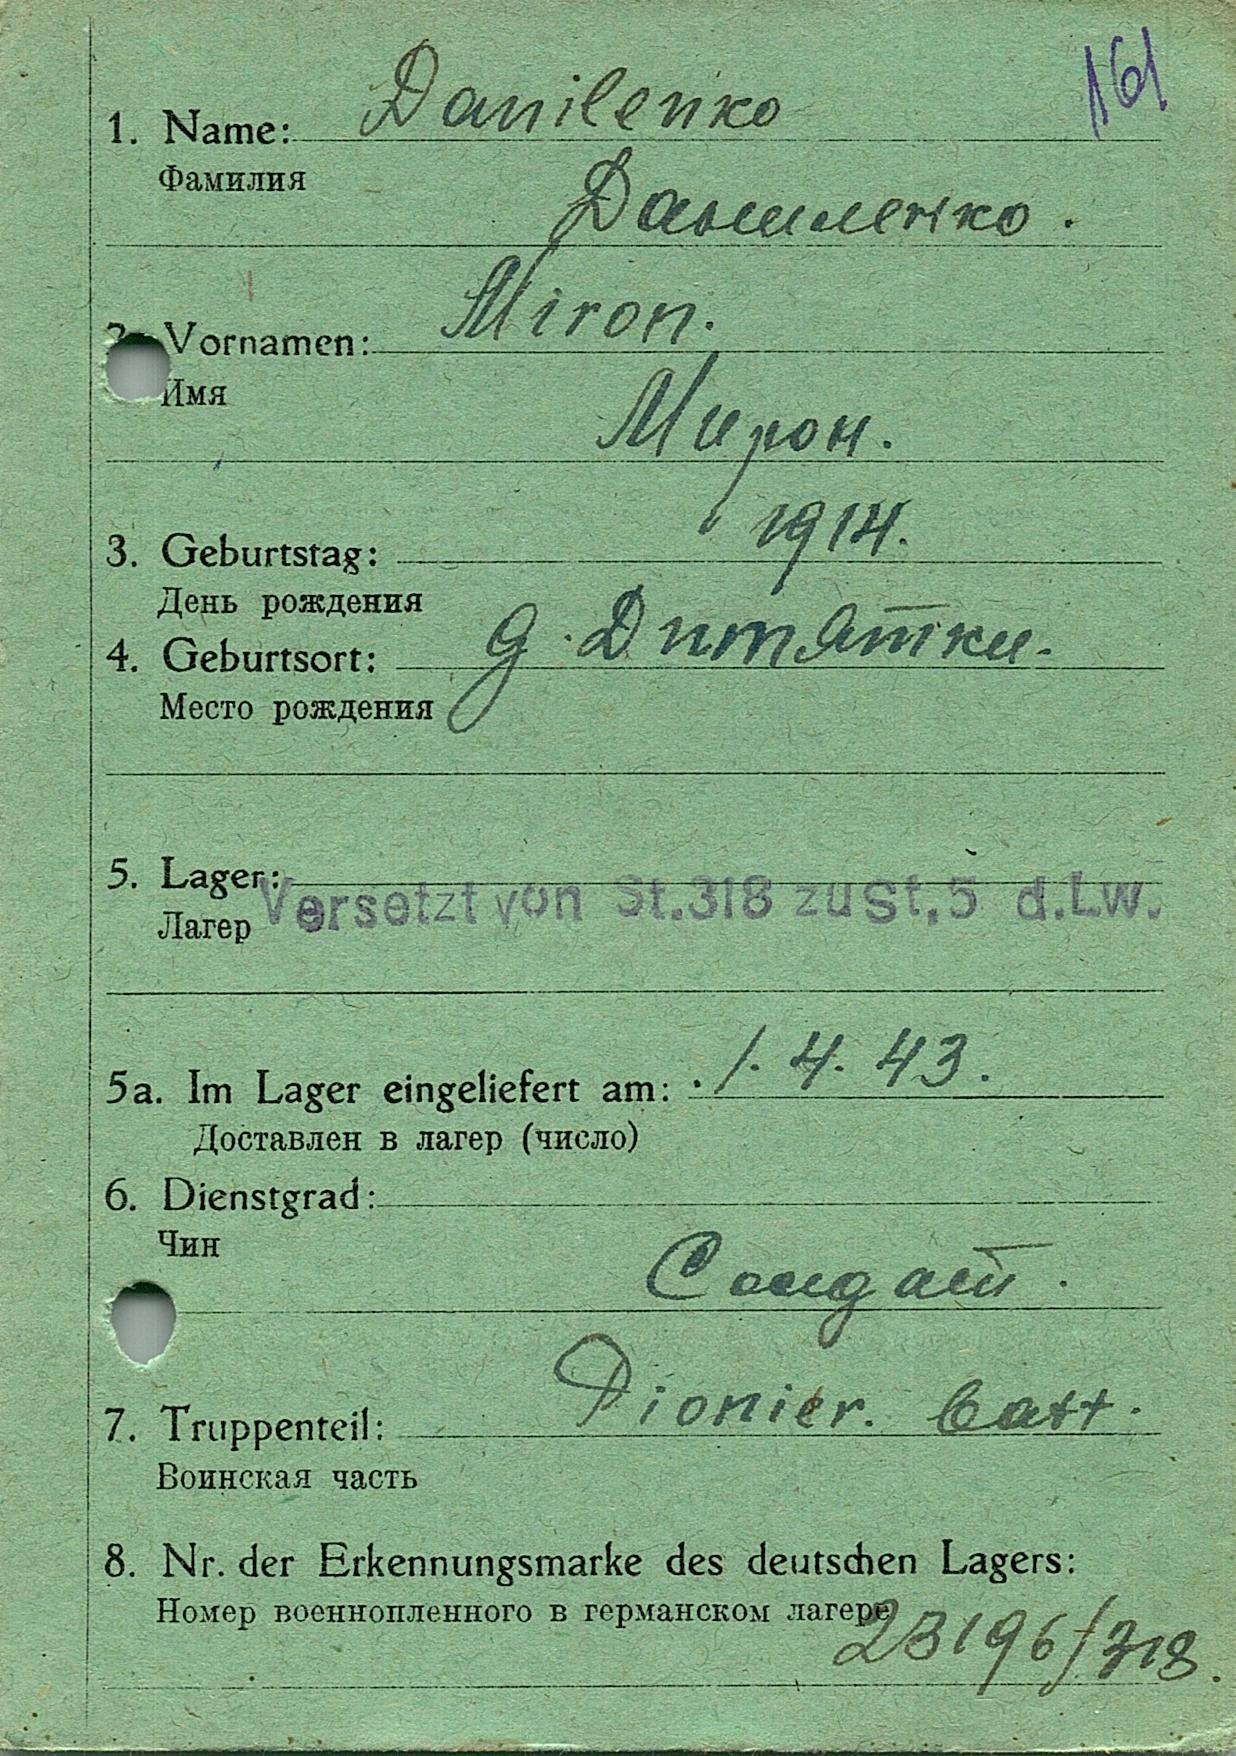 161
1. Name: Danilenko
Фамилия
Даниленко.
2. Vornamen: Miron.
Имя
Мирон.
3. Geburtstag: 1914.
День рождения
4. Geburtsort: д. Дитятки.
Место рождения
5. Lager:
Versetzt von St.318 zu St.5 d.Lw.
Лагер
5a. Im Lager eingeliefert am: 1. 4. 43.
Доставлен в лагер (число)
6. Dienstgrad:
Чин
Солдат.
7. Truppenteil: Pionier. Batt.
Воинская часть
8. Nr. der Erkennungsmarke des deutschen Lagers:
Номер военнопленного в германском лагере
23196/318.